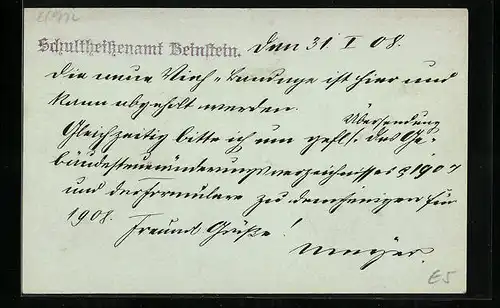 Schultheißenamt Beinstein. den 31. I 08.
Die neue Vieh-Bandage ist hier und
kann abgeholt werden.
Übersendung
Gleichzeitig bitte ich um gefl. des Ge-
bäudesteueränderungsverzeichnisses p 1907
und der Formulare zu demjenigen für
1908.
Freundl Grüße!
Mayer.
E5